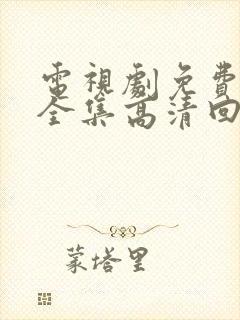 電視劇免費
全集高清回
蒙塔里